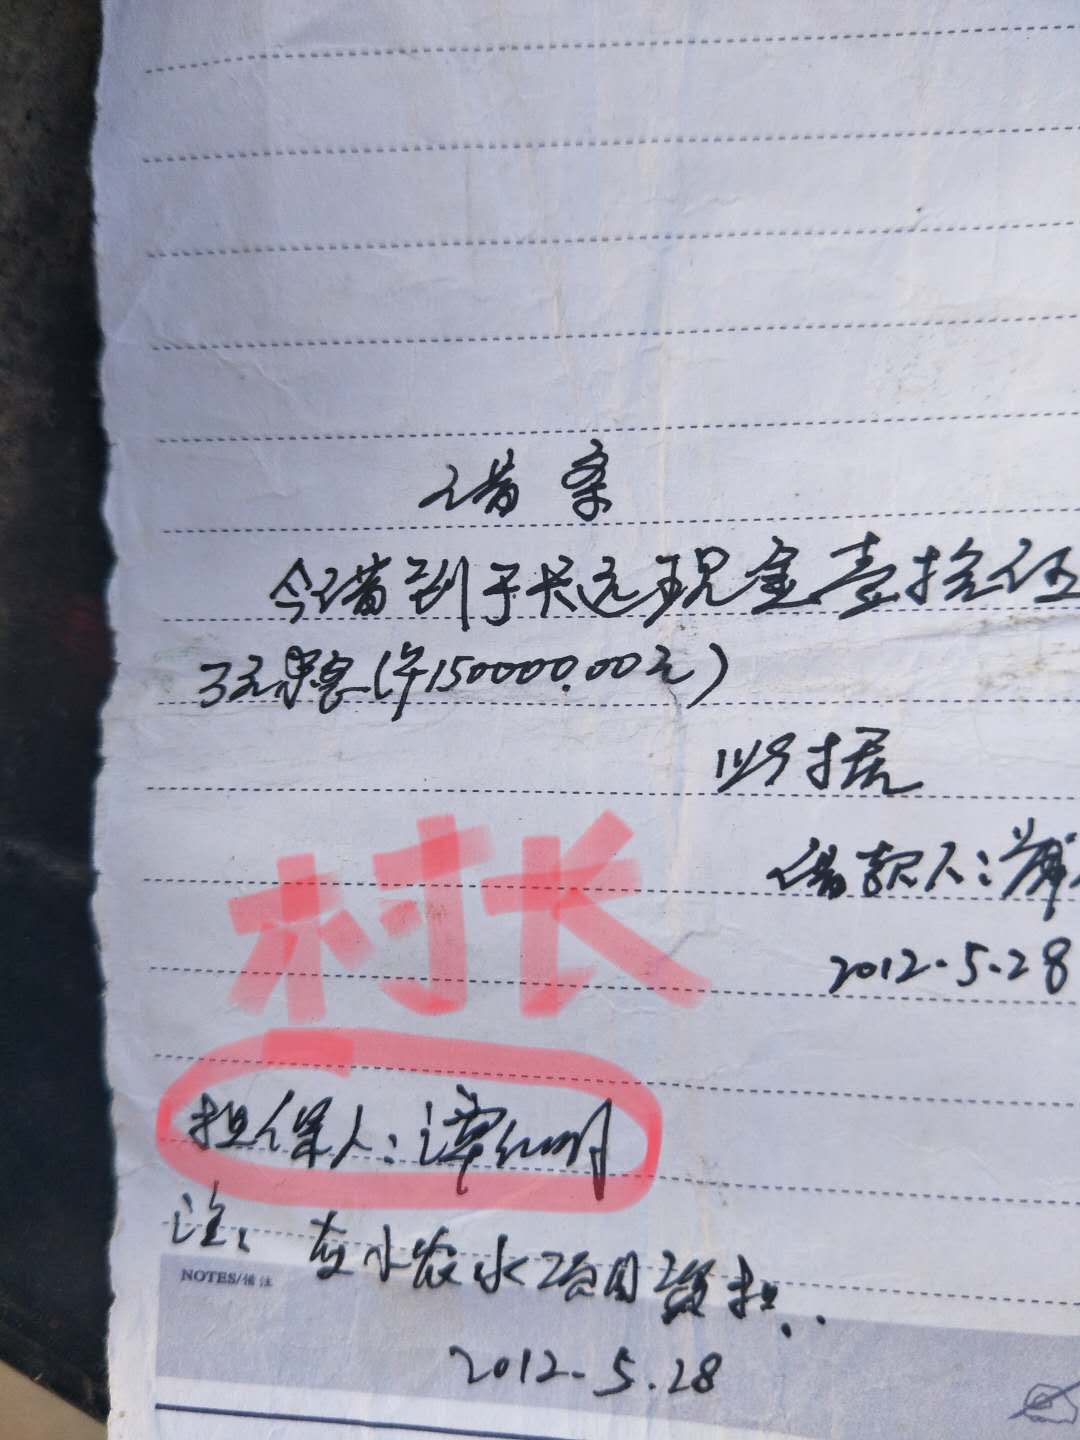 借条
今借到于长远现金壹拾伍
万元整(¥150000.00元)
此据
借款人:
2012.5.28
村长
担保人:谭红明
注: 在小农水项目资担..
NOTES/备注
2012.5.28